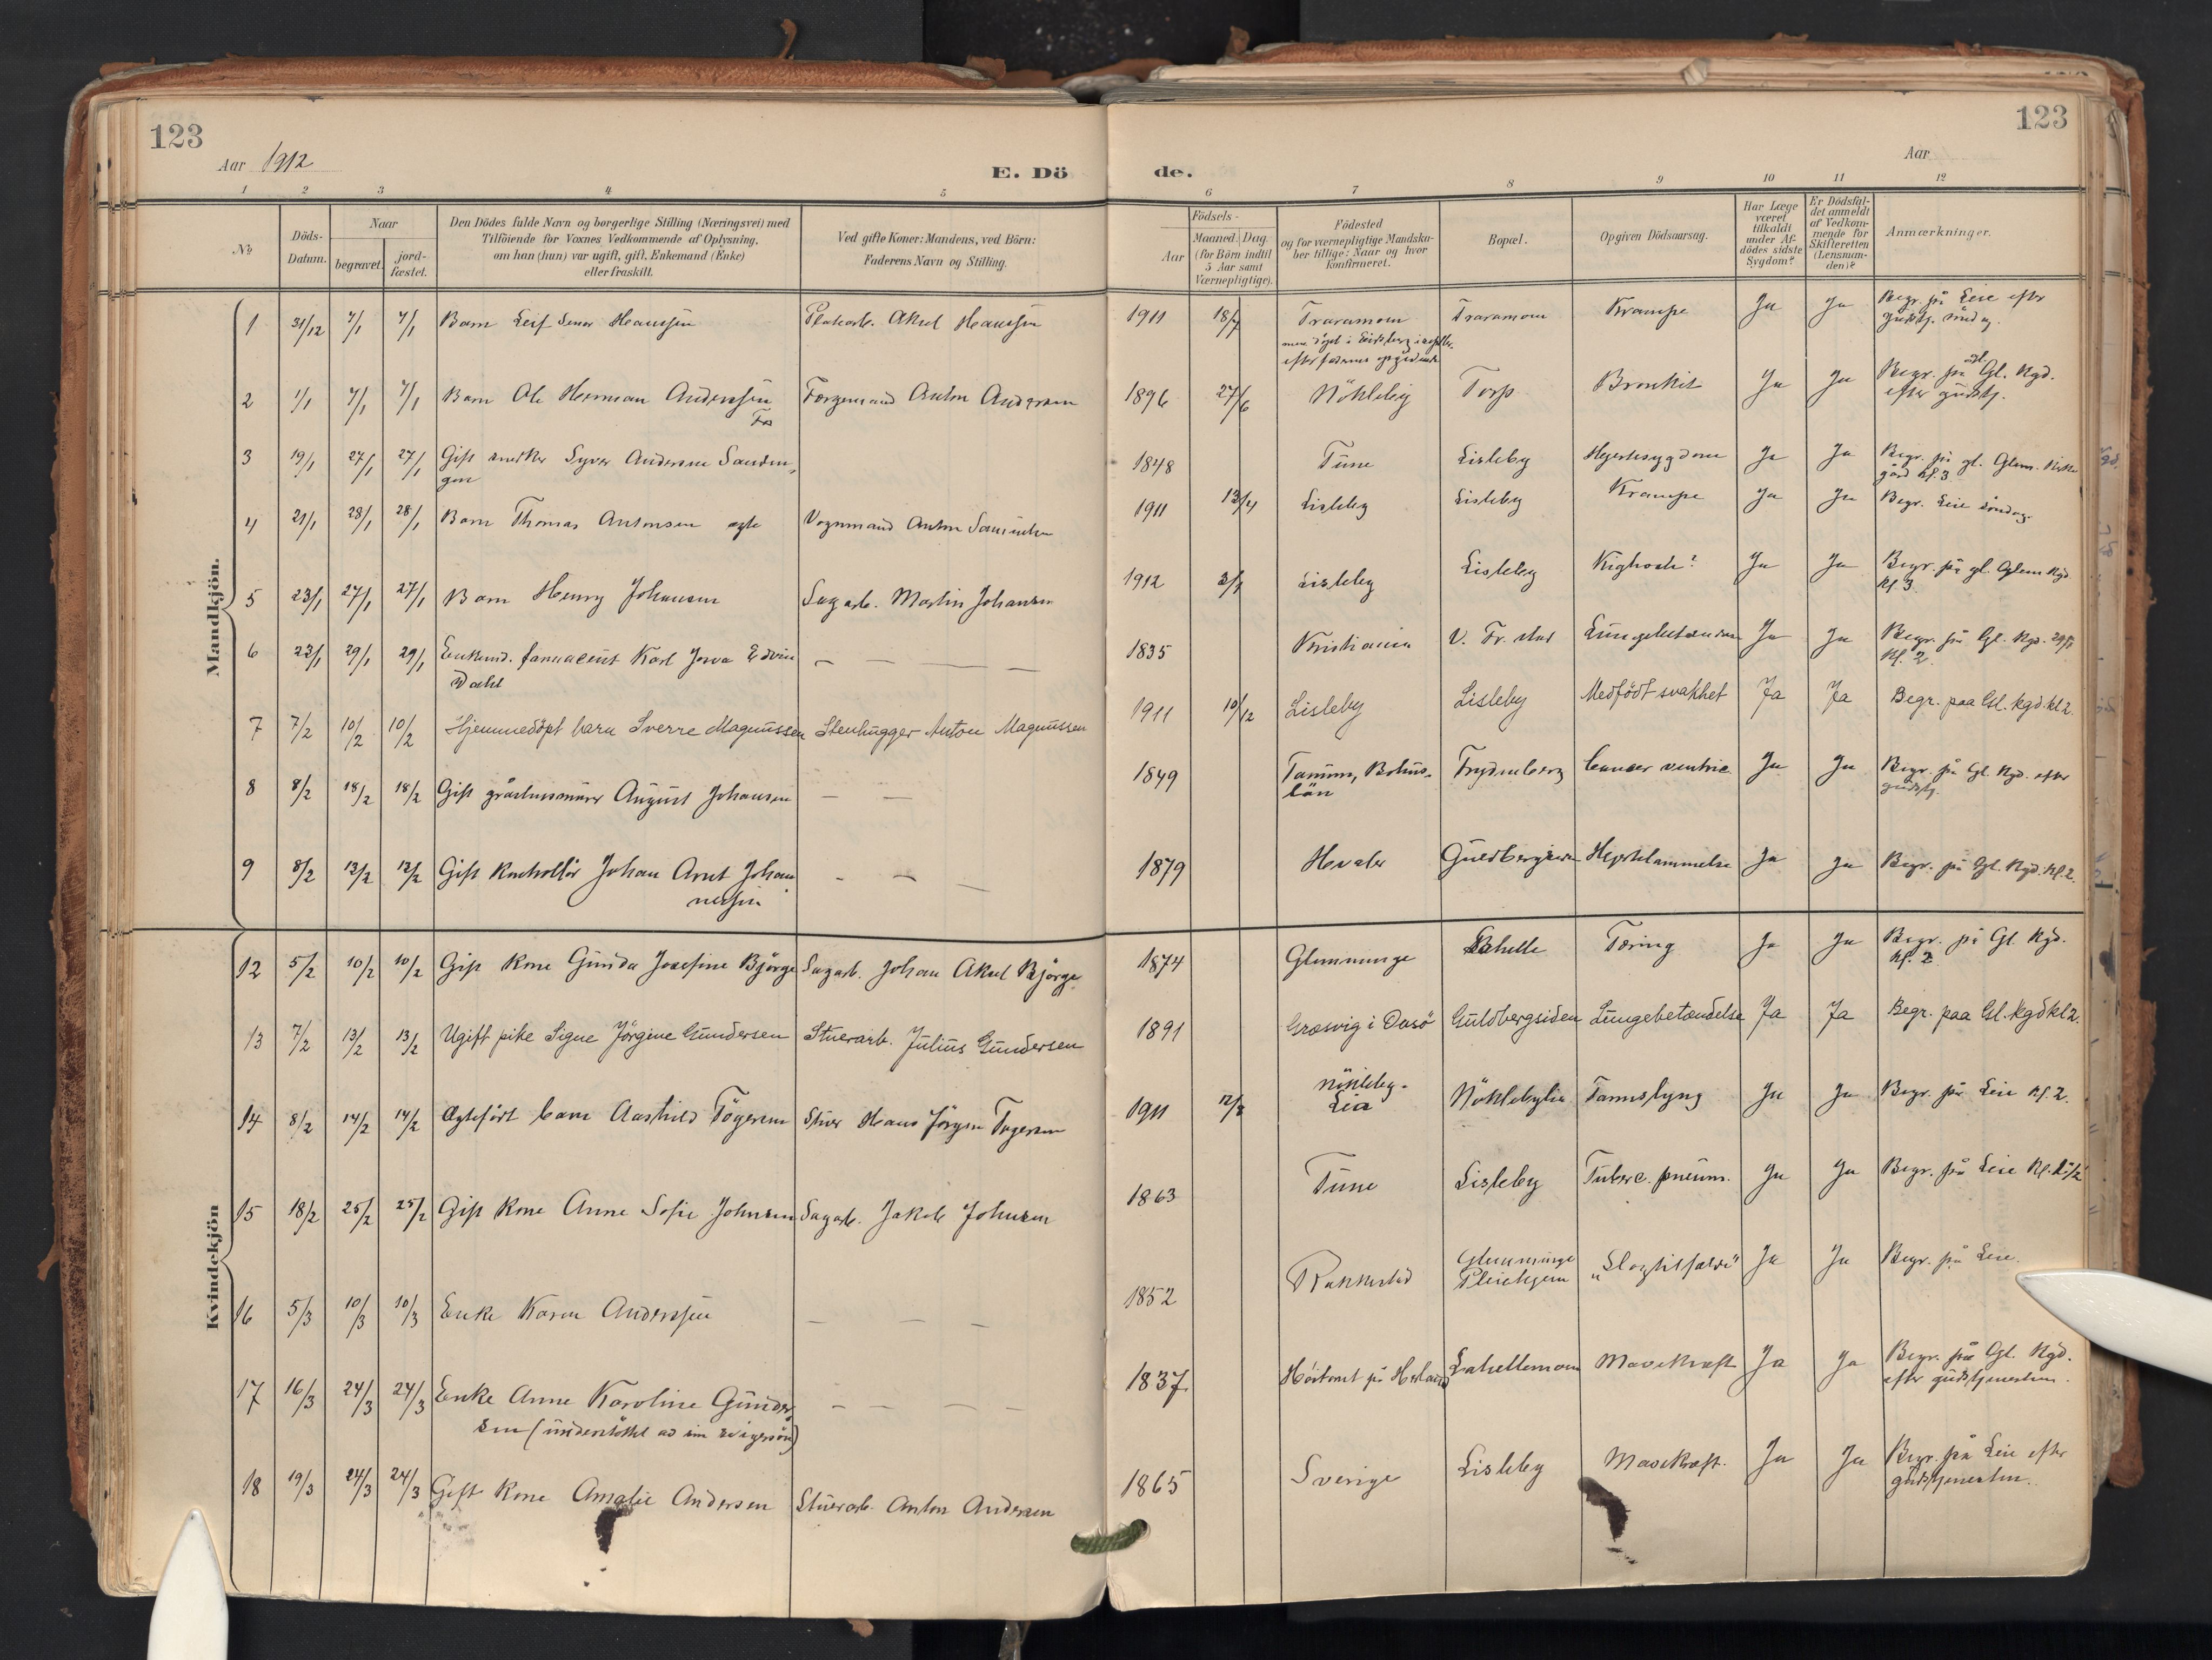 123
123
Aar 1912
E. Dö
de.
Aar
1 2 3 4 5 6 7 8 9 10 11 12
No
Döds-Datum.
Naar
begravet.
jord-fæstet.
Den Dödes fulde Navn og borgerlige Stilling (Næringsvei) med
Tilföiende for Voxnes Vedkommende af Oplysning,
om han (hun) var ugift, gift, Enkemand (Enke)
eller fraskilt.
Ved gifte Koner: Mandens, ved Börn:
Faderens Navn og Stilling.
Födsels-
Aar
Maaned. Dag.
(for Börn indtil
5 Aar samt
Værnepligtige).
Födested
og for værnepligtige Mandska-
ber tillige: Naar og hvor
konfirmeret.
Bopæl.
Opgiven Dödsaarsag.
Har Læge
været
tilkaldt
under Af-
dödes sidste
Sygdom?
Er Dödsfal-
det anmeldt
af Vedkom-
mende for
Skifteretten
(Lensman-
den)?
Anmærkninger.
Mandkjön.
1 31/12 7/1 7/1 Barn Leif Hanssen Aksel Hanssen 1911 18/7 Traramoen Traramoen Krampe Ja Ja Begr. på Leie efter
gudstj. søndag.
2 1/1 7/1 7/1 Barn Ole Herman Anderssen Anton Andersen 1896 27/6 Nökleby Torp Bronkit Ja Ja Begr. på Gl. Kgd.
efter gudstj.
3 19/1 27/1 27/1 Gift snekker Syver Andersen 1848 Tune Lisleby Hjertesygdom Ja Ja Begr. på gl. Glem. Kirke
gård kl. 3
4 21/1 28/1 28/1 Barn Thomas Antonsen ægte Vognmand Anton Samuelsen 1911 13/4 Lisleby Lisleby Krampe Ja Ja Begr. Leie söndag.
5 23/1 27/1 27/1 Barn Henry Johansen Sagarb. Martin Johansen 1912 Lisleby Lisleby Kighoste? Ja Ja Begr. på gl. Glem Kgd
kl. 3
6 29/1 29/1 Enkemd. farmaceut Karl Edvin
Dahl — — — — 1835 Kristiania V. Fr.stad Ja Ja Begr. på Gl. Kgd. 29/1
kl. 2
7 7/2 10/2 10/2 Hjemmedöpt barn Sverre Magnussen Stenhugger Anton Magnussen 1911 10/12 Lisleby Lisleby Medfödt svakhet Ja Ja Begr. paa Gl. kgd. kl 2.
8 8/2 18/2 18/2 Gift August Johansen — — 1849 Tanum, Bohus-
län Frydenberg Cancer ventric. Ja Ja Begr. på Gl. Kgd. efter
gudstj.
9 8/2 12/2 12/2 Gift kontrollör Johan Arnt Johan
nessen — — — 1879 Hvaler Guldbergsiden Hjertelammelse Ja Ja Begr. på Gl. Kgd. kl. 2.
Kvindekjön
12 5/2 10/2 10/2 Gift kone Gunda Josefine Björge Sagarb. Johan Aksel Björge 1874 Glemminge Tæring Ja Ja Begr. på Gl. Kgd.
kl. 2
13 7/2 13/2 13/2 Ugift pike Signe Jörgine Gundersen Stuerarb. Julius Gundersen 1891 Græsvig i Onsö Guldbergsiden Lungebetændelse Ja Ja Begr. paa Gl. kgd kl 2.
14 8/2 14/2 14/2 Ægtefödt barn Aashild Tögersen Stuer Hans Jörgen Tögersen 1911 Nökleby-
Lia Nöklebylia Ja Ja Begr. på Leie kl. 2.
15 18/2 25/2 25/2 Gift kone Anne Sofie Johnsen Sagarb. Jakob Johnsen 1863 Tune Lisleby Tuberc. pneum. Ja Ja Begr. på Leie
16 5/3 10/3 10/3 Enke Karen Anderssen — — — 1852 Rakkestad Glemminge
Pleiehjem „Slagtilfælde" Ja Ja Begr. på Leie.
17 16/3 24/3 24/3 Enke Anne Karoline Gunder
sen (understöttet av sin svigersön) — — — — 1837 Lahellemoen Mavekræft Ja Ja Begr. på Gl. Kgd.
efter gudstjenesten.
18 19/3 24/3 24/3 Gift kone Amalie Andersen Stuerarb. Anton Andersen 1865 Sverige Lisleby Mavekræft. Ja Ja Begr. på Leie efter
gudstjenesten.